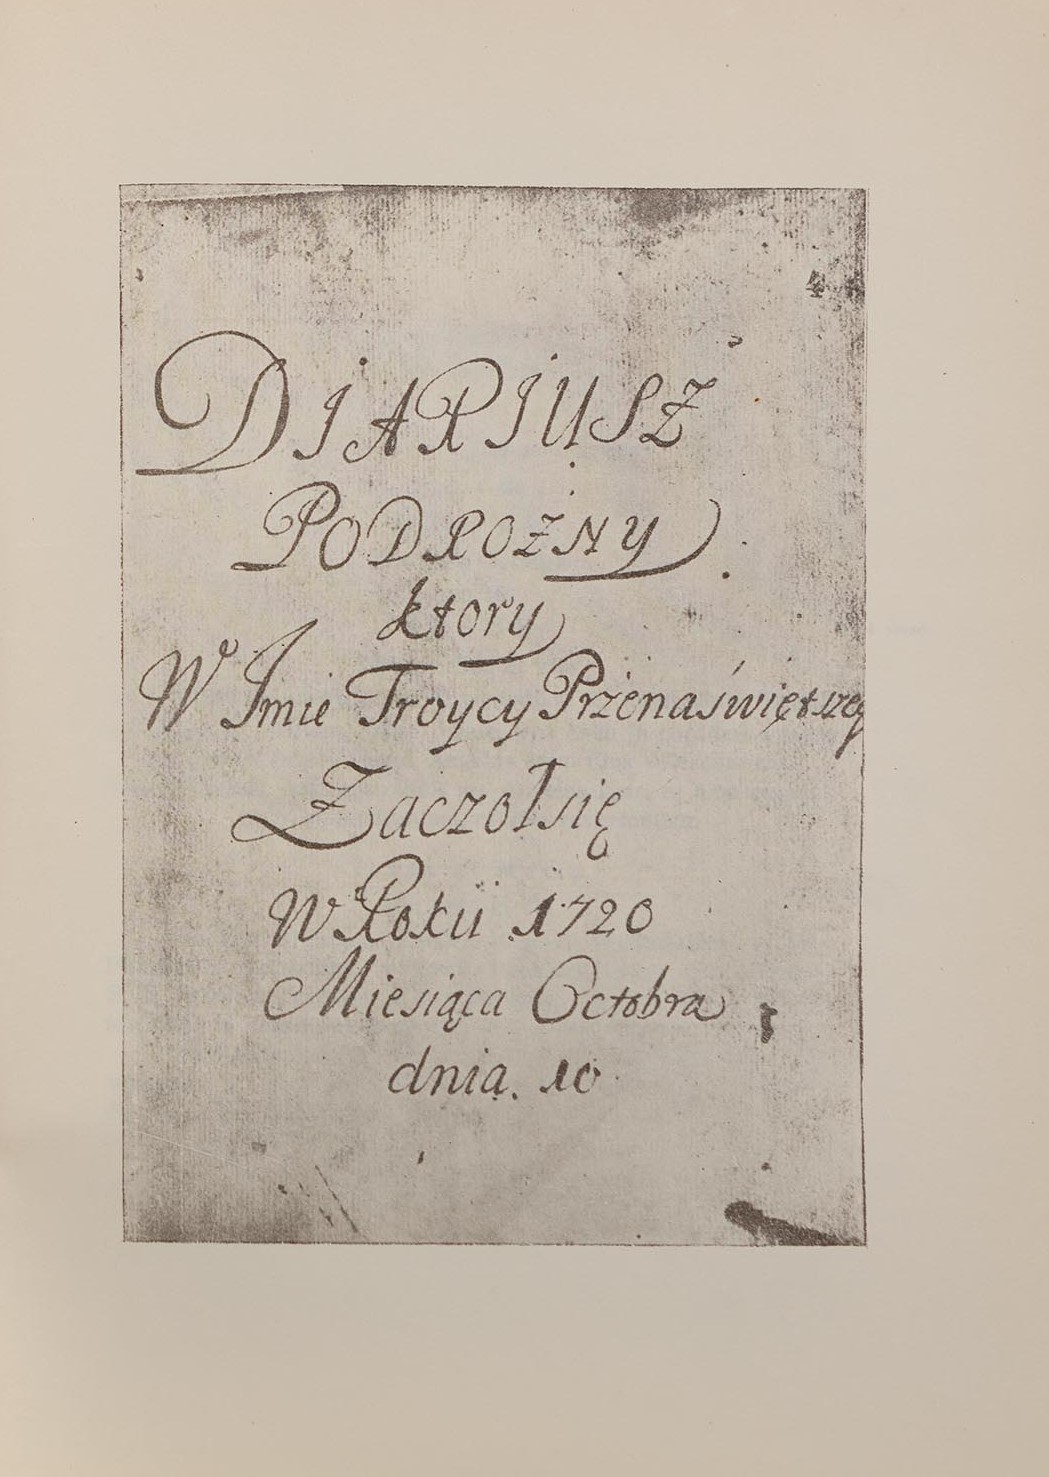 DIARIUSZ
PODROŻNY
ktory
W Imie Troycy Przenaświętszey
Zaczoł się
W Roku 1720
Miesiąca Octobra
dnia. 10